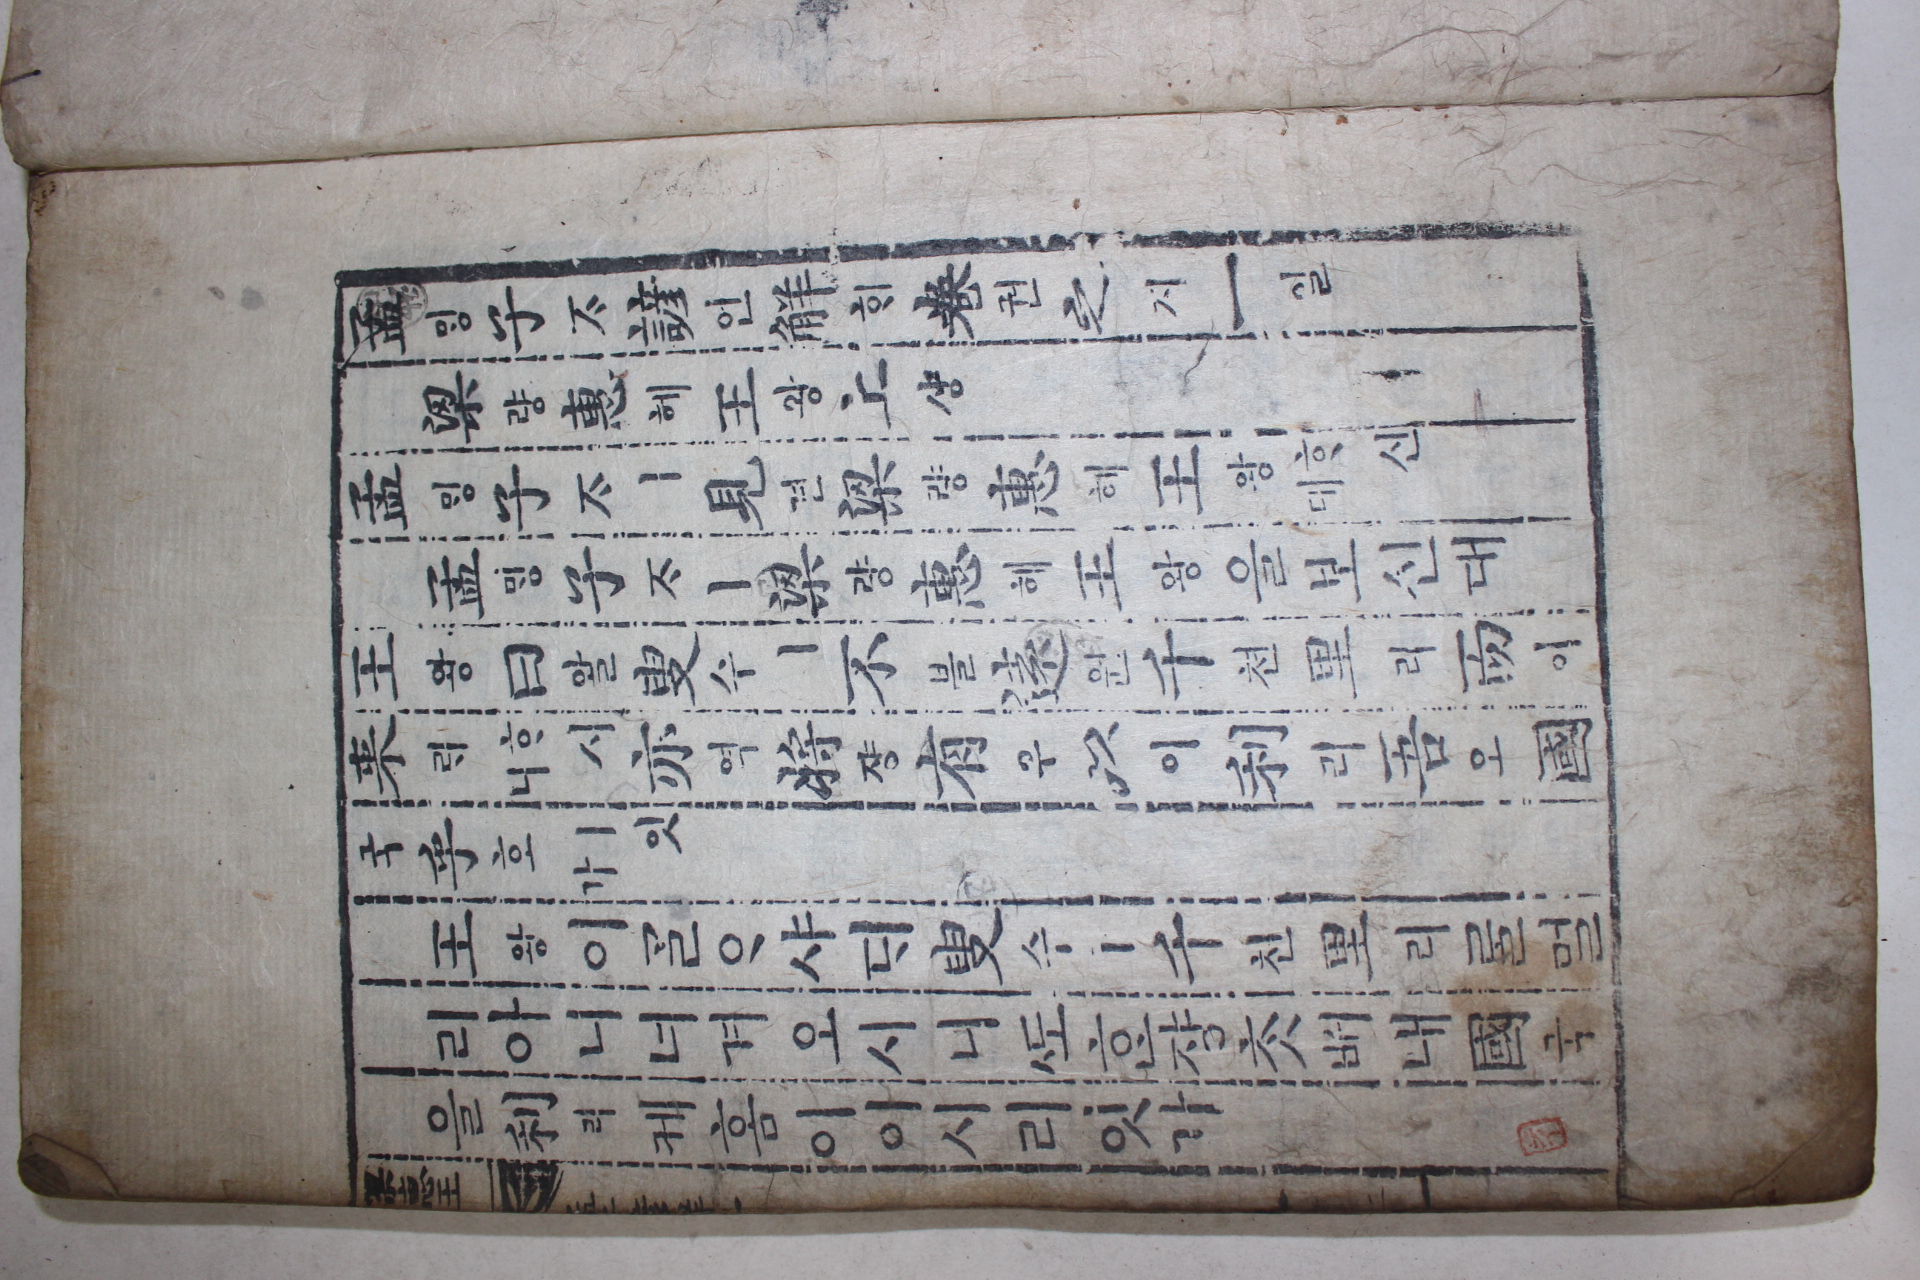 孟ᄆᆡᆼ子ᄌᆞ諺언解ᄒᆡ卷권之지一일
梁량惠혜王왕上샹
孟ᄆᆡᆼ子ᄌᆞㅣ見견梁량惠혜王왕ᄒᆞ신대
孟ᄆᆡᆼ子ᄌᆞㅣ梁량惠혜王왕을보신대
王왕曰왈叟수ㅣ不블遠원千쳔里리而이
来ᄅᆡᄒᆞ시니亦역將쟝有유以이利리吾오國
국乎호ㅣ잇가
王왕이ᄀᆞᆯᄋᆞ샤ᄃᆡ叟수ㅣ千쳔里리ᄅᆞᆯ멀
리아니너겨오시니ᄯᅩᄒᆞᆫ쟝ᄎᆞᆺᄡᅥ내國국
을利리케홈이이시리잇가